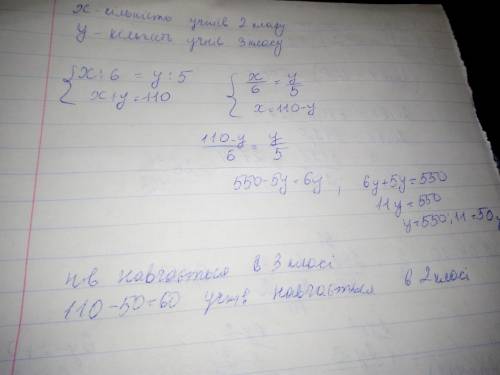 x - кількість учнів 2 класу
y - кількість учнів 3 класу
{ x : 6 = y : 5
x + y = 110
{ x/6 = y/5
x = 110 - y
110-y/6 = y/5
550 - 5y = 6y ; 6y + 5y = 550
11y = 550
y = 550 : 11 = 50 y
н.в навчається в 3 класі
110 - 50 = 60 учнів навчається в 2 класі